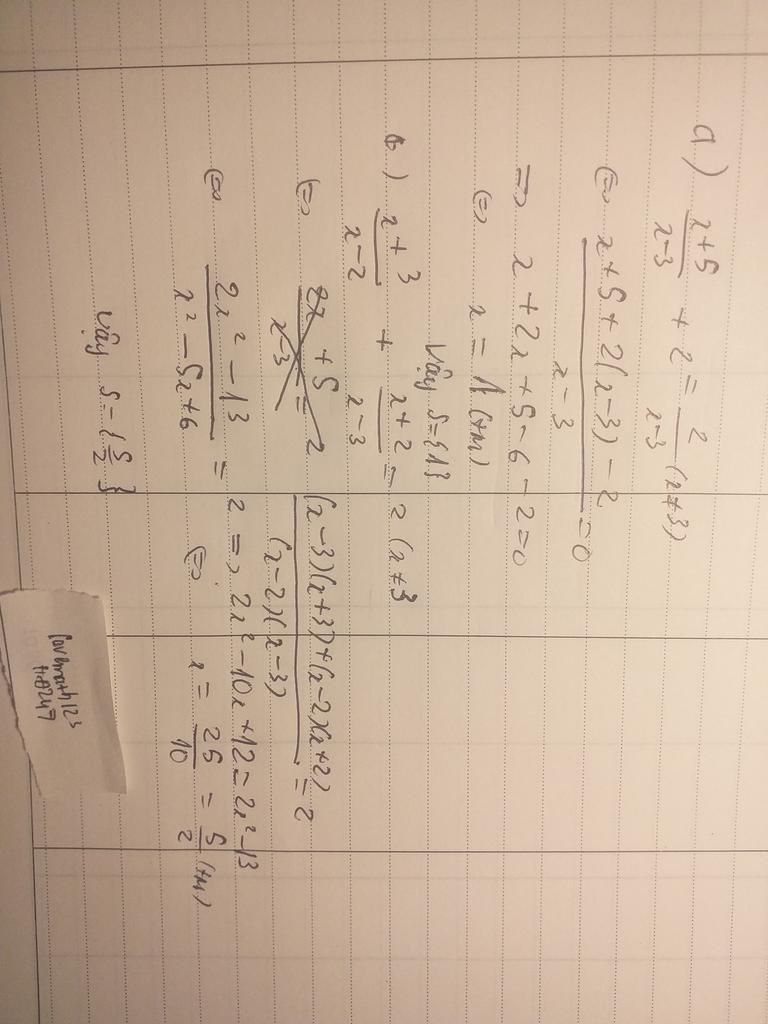 a) \frac{x+5}{x-3} + 2 = \frac{2}{x-3} (x≠3)
(=) \frac{x+5+2(x-3)-2}{x-3} = 0
=> x+2x+5-6-2=0
(=) x = 1 (tm)
Vậy S={1}
b.) \frac{x+3}{x-2} + \frac{x+2}{x-3} = 2 (x≠3
(=) \frac{(x-3)(x+3)+(x-2)(x+2)}{(x-2)(x-3)} = 2
(=) \frac{2x²-13}{x²-5x+6} = 2 =, 2x²-10x+12=2x²-13
(=) x = \frac{25}{10} = \frac{5}{2} (tm)
Vậy S={\frac{5}{2}}